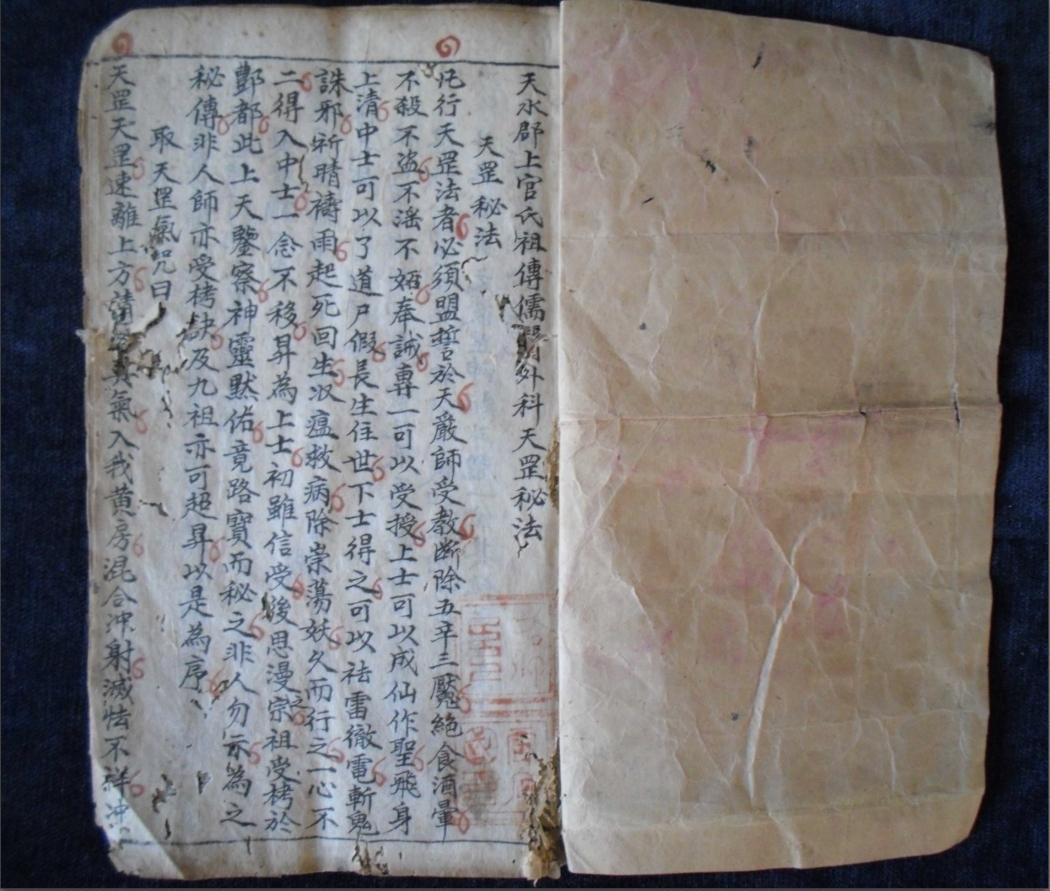 天水郡上官氏祖傳儒醫外科天罡秘法
天罡秘法
凡行天罡法者必須盟誓於天嚴師受教斷除五辛三魘絶食酒暈
不殺不盗不滛不婬奉誠專一可以受授上士可以成仙作聖飛身
上清中士可以了道尸假長生住世下士得之可以祛雷徹電斬鬼
誅邪祈晴禱雨起死回生収瘟救病除崇蕩妖久而行之一心不
二得入中士一念不移昇為上士初雖信受後思漫宗祖受栲於
酆都此上天鑒察神靈默佑竟路寳而秘之非人勿示為之
秘傳非人師亦受栲缺及九祖亦可超昇以是為序
取天罡氣咒曰
天罡天罡速離上方請 真氣入我黄房混合冲射滅怯不祥冲